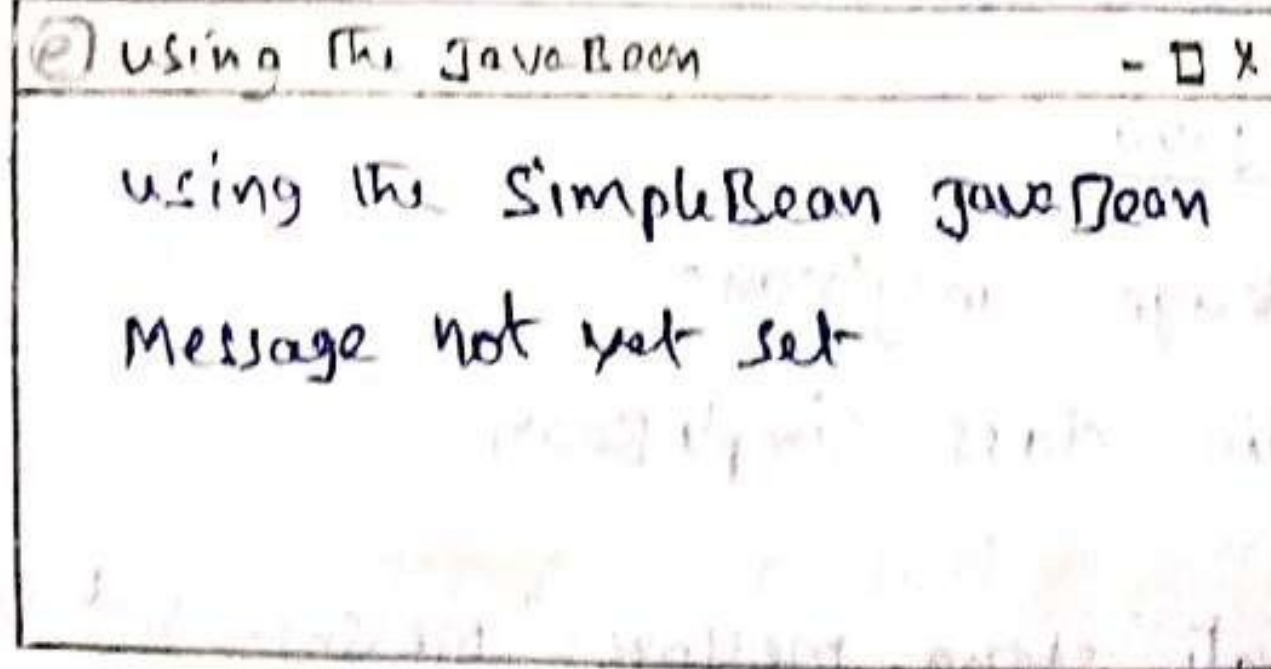 e) using The JavaBean - □ X
using The SimpleBean JavaBean
Message not yet set